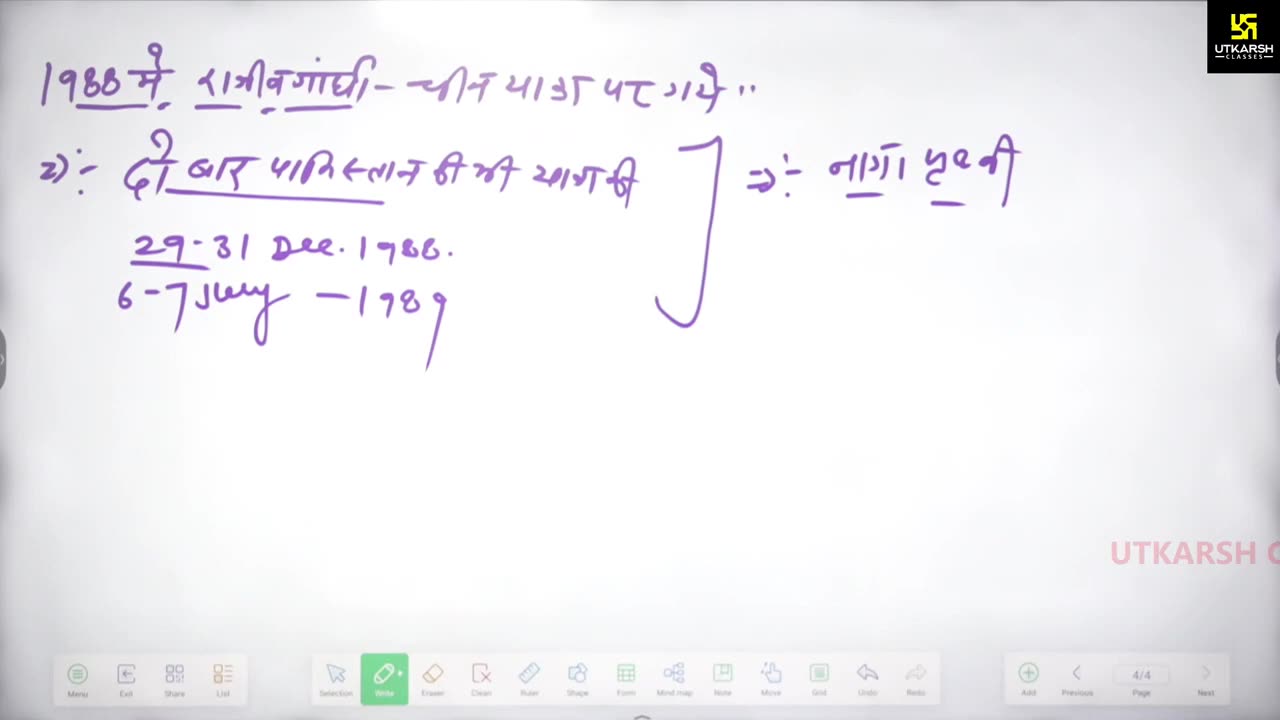 UTKARSH
CLASSES
1988 में राजीव गांधी – चीन यात्रा पर गये ..
2) :- दो बार पाकिस्तान की भी यात्रा की
29-31 Dec. 1988.
6-7 July – 1989
⇒ :- नागा पृथ्वी
UTKARSH C
Menu
Exit
Share
List
Selection
Write
Eraser
Clean
Ruler
Shape
Form
Mind map
Note
Move
Grid
Undo
Redo
Add
Previous
4/4
Page
Next